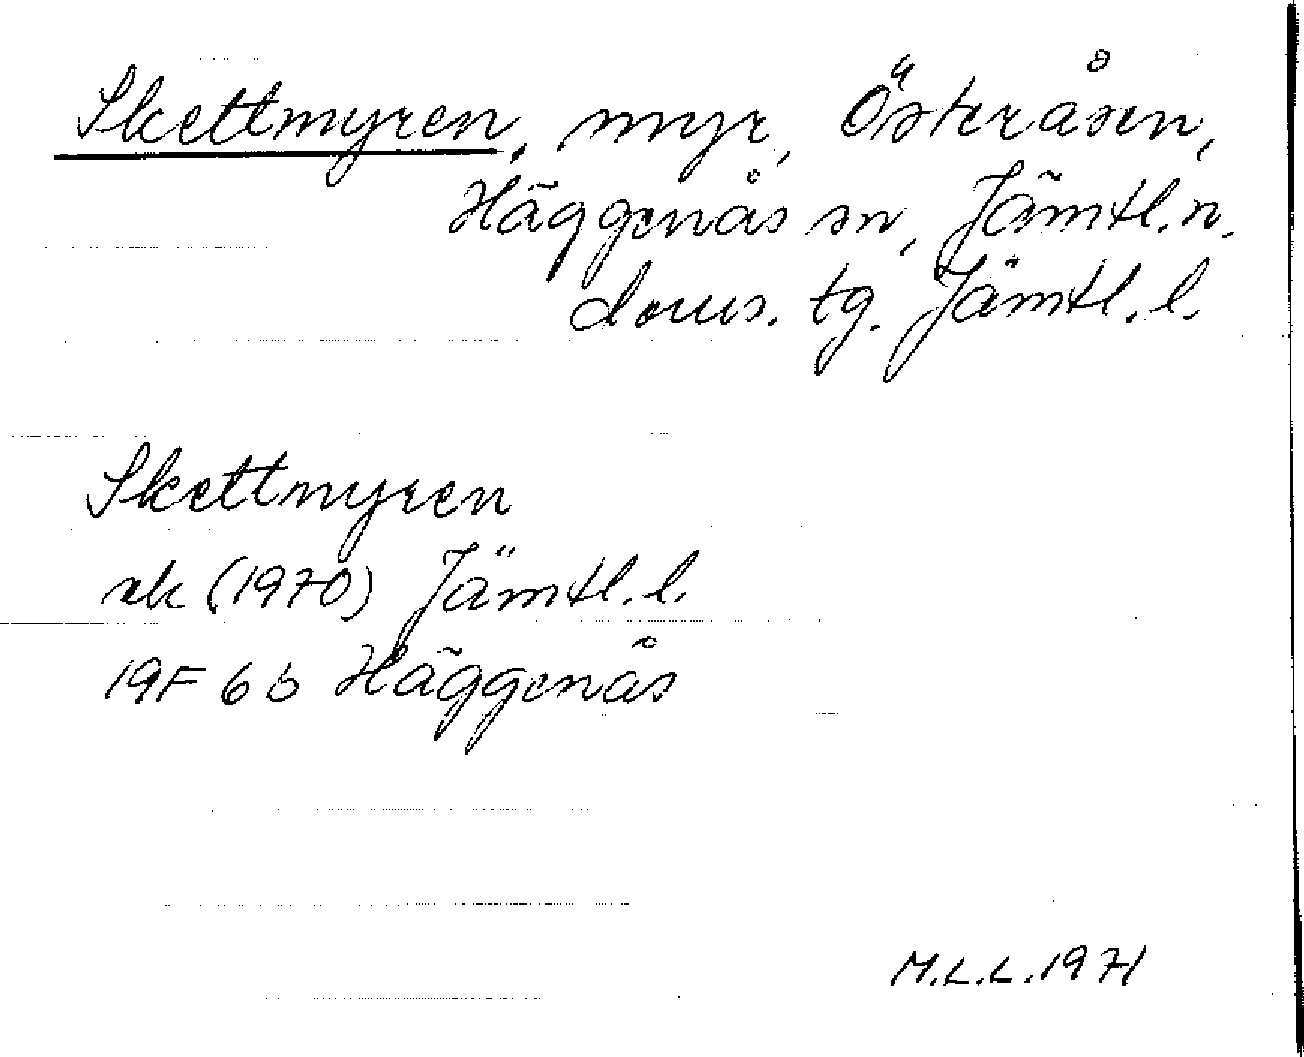 Skettmyren, myr, Österåsen,
Häggenås sn, Jämtl. n.
doms. tg. Jämtl. l.
Skettmyren
ek (1970) Jämtl. l.
19F 6b Häggenås
M.L.L. 1971